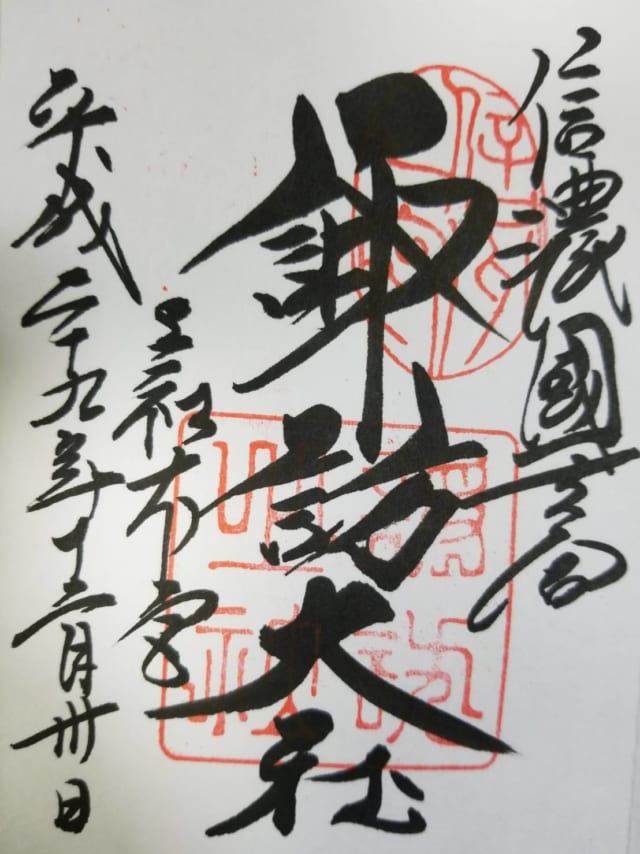 信濃國一之宮
諏訪大社
上社本宮
平成二十九年十二月卅日